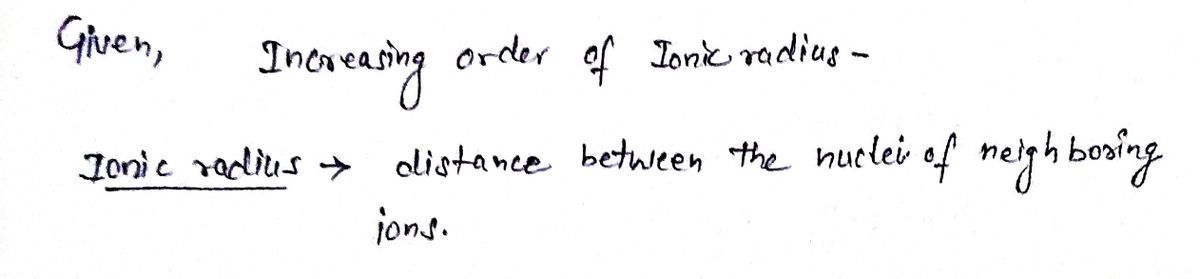 Given, Increasing order of Ionic radius -
Ionic radius → distance between the nuclei of neighboring
ions.